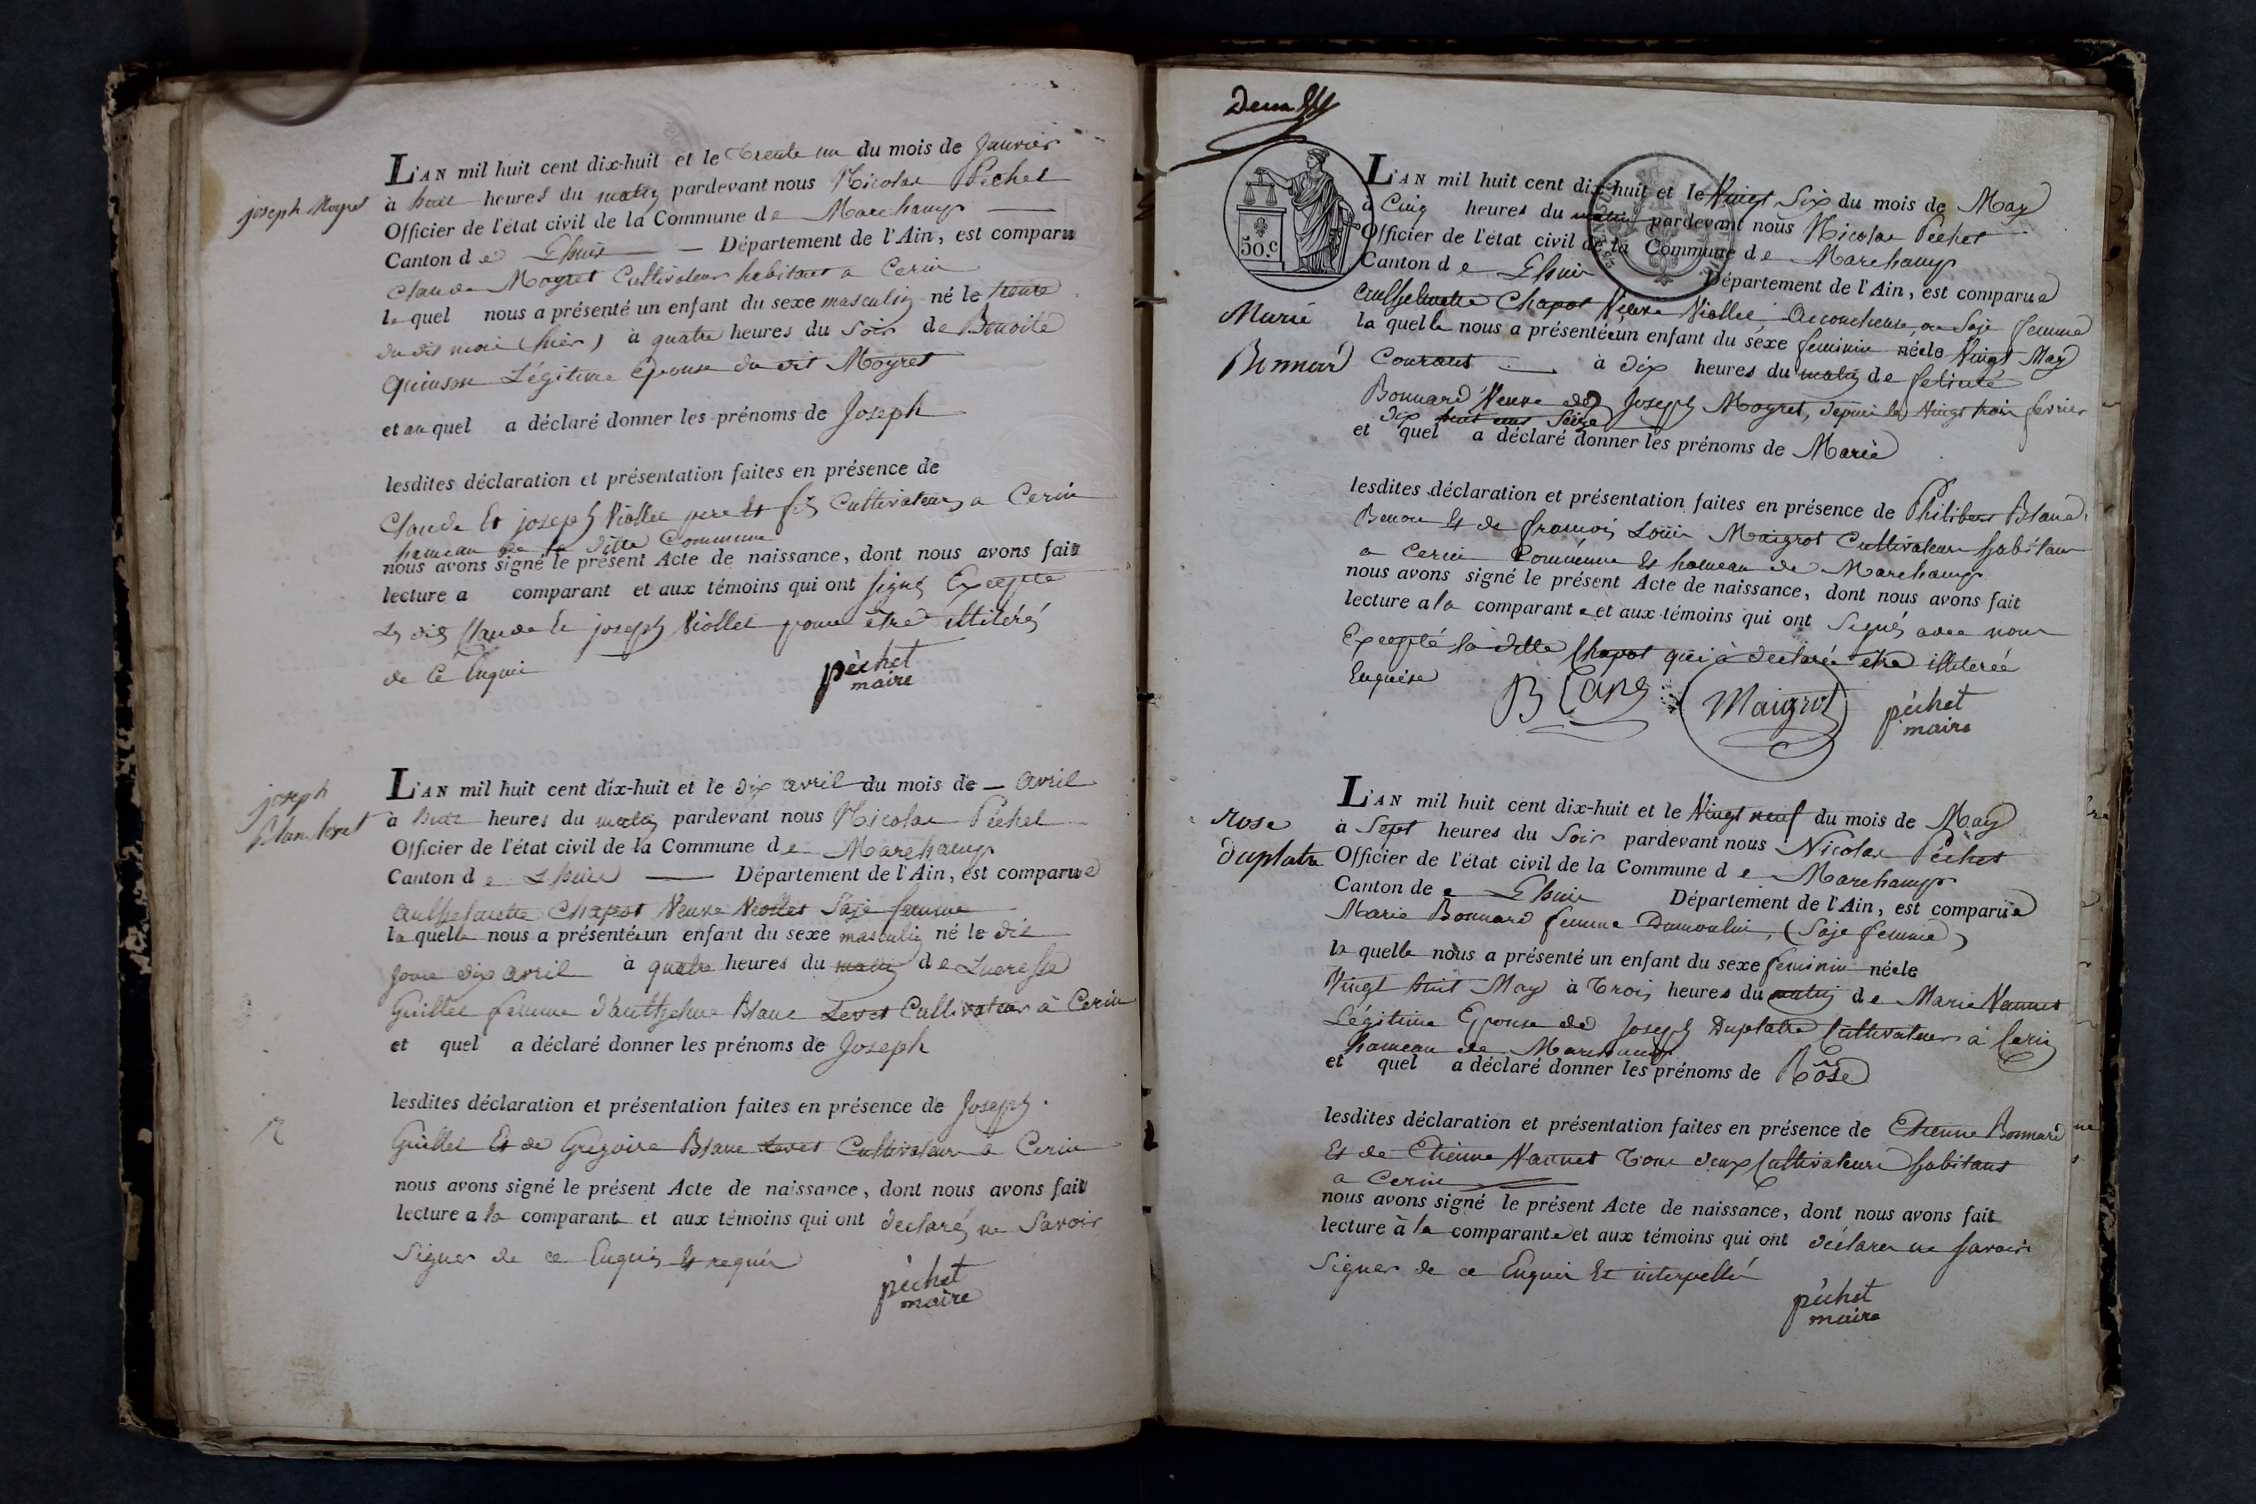 joseph Moyret
L'AN mil huit cent dix-huit et le trente un du mois de Janvier
à huit heures du matin pardevant nous Nicolas Péchet
Officier de l'état civil de la Commune de Marchamp
Canton de Lhuis Département de l'Ain, est comparu
Claude Moyret Cultivateur habitant a Cerin
lequel nous a présenté un enfant du sexe masculin né le trente
du dit mois (hier) à quatre heures du Soir de Benoite
Quinson Légitime épouse du dit Moyret
et au quel a déclaré donner les prénoms de Joseph
lesdites déclaration et présentation faites en présence de
Claude Et joseph Viollet pere et fils Cultivateurs a Cerin
hameau de la ditte Commune
nous avons signé le présent Acte de naissance, dont nous avons fait
lecture a comparant et aux témoins qui ont signés Excepté
Les dits Claude Et joseph Viollet pour être illitérés
de Ce Enquis
péchet
maire
joseph
Blanc levet
L'AN mil huit cent dix-huit et le dix avril du mois de avril
à huit heures du matin pardevant nous Nicolas Péchet
Officier de l'état civil de la Commune de Marchamp
Canton de Lhuis Département de l'Ain, est comparue
Anthelmette Chapot Veuve Viollet Saje femme
la quelle nous a présentée un enfant du sexe masculin né le dit
jour dix avril à quatre heures du matin de Lucresse
Guillet femme d'anthelme Blanc Levet Cultivateur à Cerin
et quel a déclaré donner les prénoms de Joseph
lesdites déclaration et présentation faites en présence de Joseph
Guillet Et de Grégoire Blanc Levet Cultivateurs a Cerin
nous avons signé le présent Acte de naissance, dont nous avons fait
lecture a la comparante et aux témoins qui ont déclarés ne Savoir
Signer de ce Enquis et requis
péchet
maire
Deux
50.c
L'AN mil huit cent dix-huit et le Vingt Six du mois de May
à Cinq heures du matin pardevant nous Nicolas Péchet
Officier de l'état civil de la Commune de Marchamp
Canton de Lhuis Département de l'Ain, est comparue
Marie
Bonnard
Anthelmette Chapot Veuve Viollet Accoucheuse ou Saje femme
la quelle nous a présentée un enfant du sexe feminin née le Vingt May
Courant à dix heures du matin de
Bonnard Veuve de Joseph Moyret, depuis le Vingt trois fevrier
dix huit cent Seize
et quel a déclaré donner les prénoms de Marie
lesdites déclaration et présentation faites en présence de Philibert Blanc
Benon Et de françois Louis Maigrot Cultivateurs habitans
a Cerin Commune Et hameau de Marchamp
nous avons signé le présent Acte de naissance, dont nous avons fait
lecture a la comparante et aux témoins qui ont Signés avec nous
Excepté la ditte Chapot qui à declarée être illiterée
Enquise
Blanc Maigrot péchet
maire
rose
duplatre
L'AN mil huit cent dix-huit et le Vingt neuf du mois de May
à Sept heures du Soir pardevant nous Nicolas Péchet
Officier de l'état civil de la Commune de Marchamp
Canton de Lhuis Département de l'Ain, est comparue
Marie Bonnard femme Dumoulin, (Saje femme)
la quelle nous a présenté un enfant du sexe feminin née le
Vingt huit May à Trois heures du matin de Marie Vannet
Légitime Epouse de Joseph Duplatre Cultivateur à Cerin
hameau de Marchamp
et quel a déclaré donner les prénoms de Rôse
lesdites déclaration et présentation faites en présence de Etienne Bonnard
Et de Etienne Vannet tous deux Cultivateurs habitans
a Cerin
nous avons signé le présent Acte de naissance, dont nous avons fait
lecture à la comparante et aux témoins qui ont déclarer ne Savoir
Signer de ce Enquis Et interpellés
péchet
maire